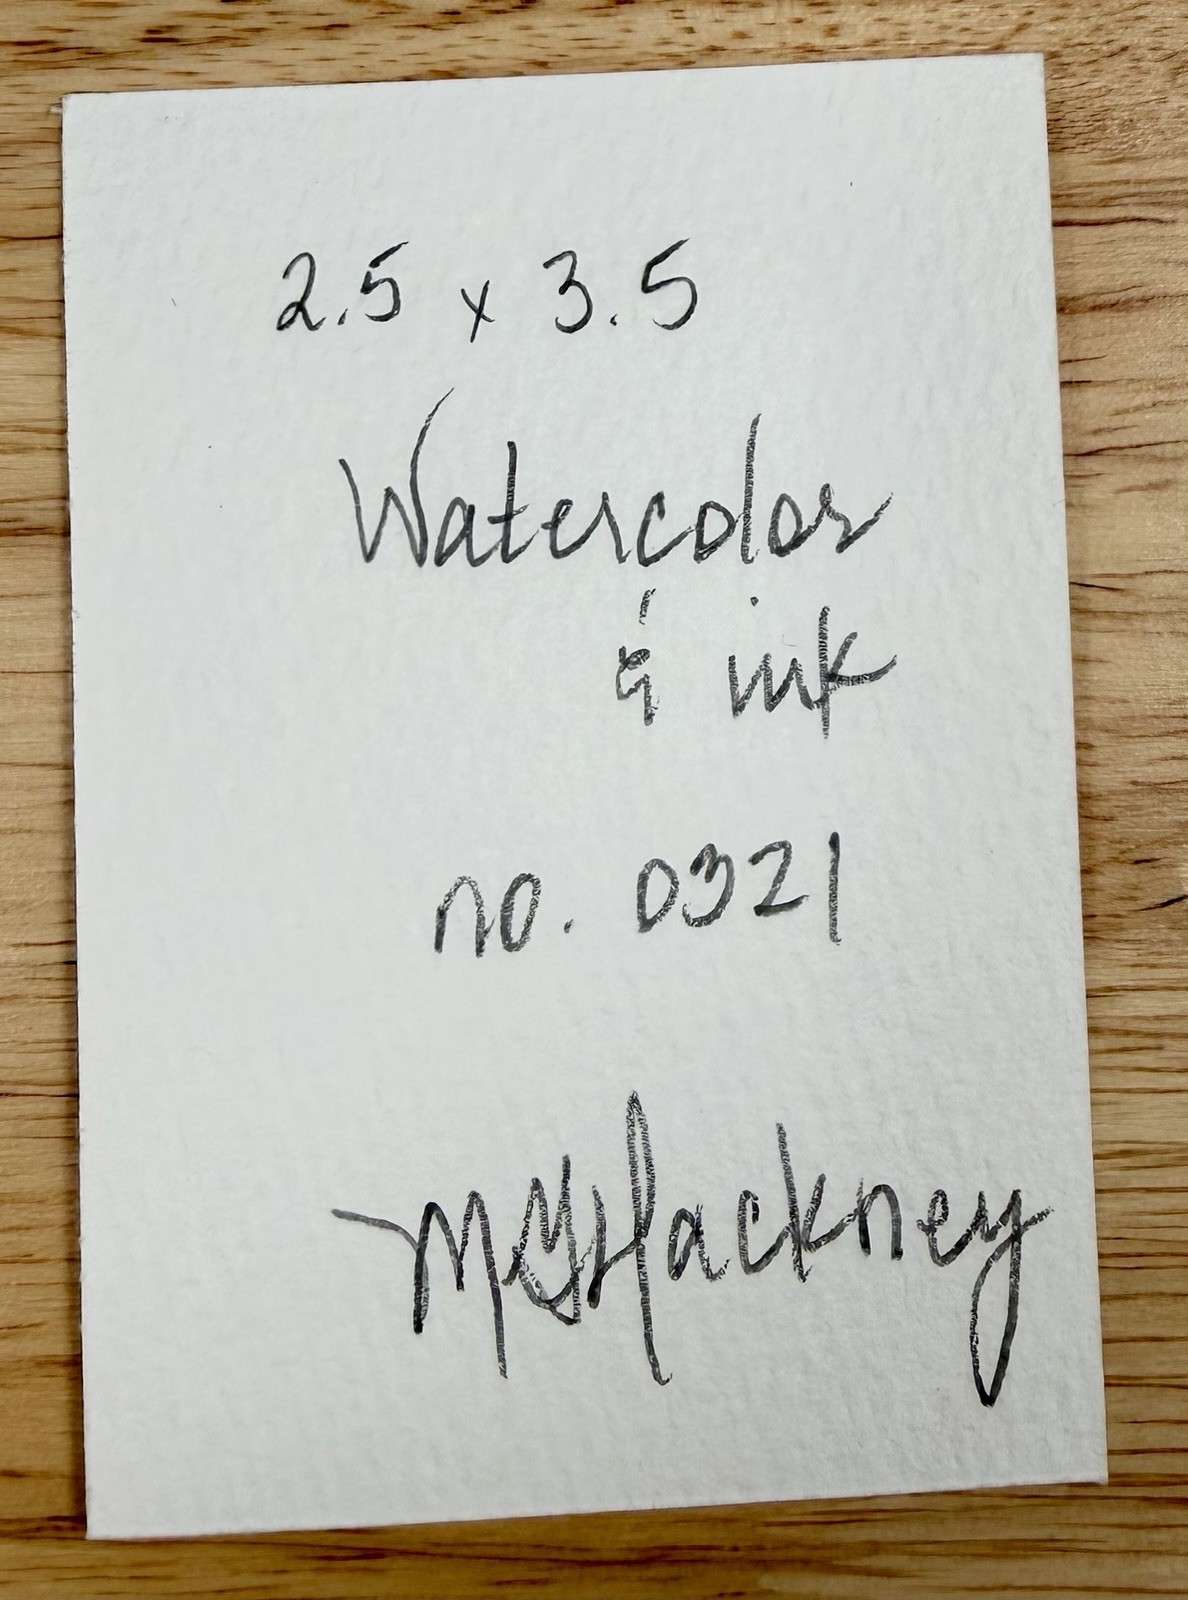 2.5 x 3.5
Watercolor
& ink
no. 0321
MGHackney